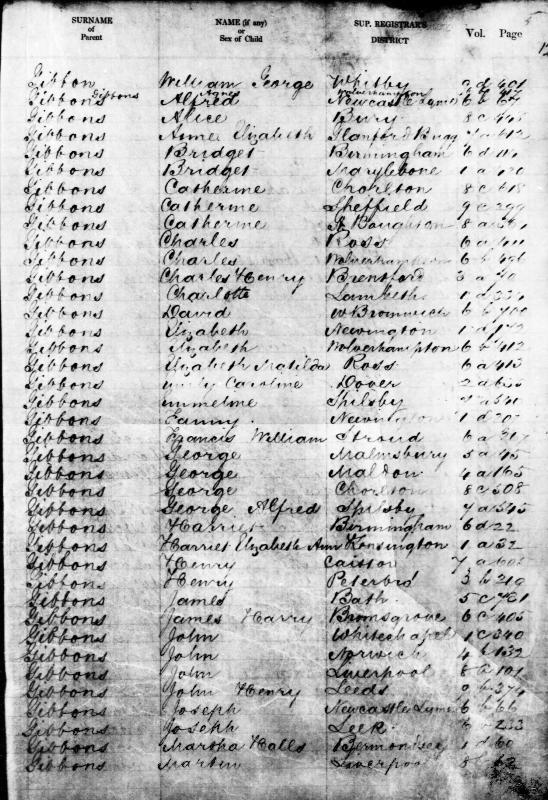 SURNAME of Parent NAME (if any) or Sex of Child SUP. REGISTRAR'S DISTRICT Vol. Page 5
12
Gibbon William George Whitby 9 d 401
Gibbons Agnes Wolverhampton 6 b
Gibbons Alfred Newcastle Lyme 6 b 67
Gibbons Alice Bury 8 c
Gibbons Anne Elizabeth 7 a 612
Gibbons Bridget Birmingham 6 d
Gibbons Bridget Marylebone 1 a
Gibbons Catherine Chorlton 8 c 618
Gibbons Catherine Sheffield 9 c 299
Gibbons Catherine Gt Boughton 8 a
Gibbons Charles Ross 6 a 411
Gibbons Charles Wolverhampton 6 b
Gibbons Charles Henry Brentford 3 a
Gibbons Charlotte Lambeth 1 d
Gibbons David W Bromwich 6 b 700
Gibbons Elizabeth Newington 1 d
Gibbons Elizabeth Wolverhampton 6 b 412
Gibbons Elizabeth Matilda Ross 6 a 413
Gibbons Caroline Dover 2 a
Gibbons Spilsby 7 a
Gibbons Fanny Newington 1 d
Gibbons Francis William Stroud 6 a 317
Gibbons George Malmsbury 5 a 45
Gibbons George Maldon 4 a 165
Gibbons George Chorlton 8 c 508
Gibbons George Alfred Spilsby 7 a 545
Gibbons Harriet Birmingham 6 d 22
Gibbons Harriet Elizabeth Ann Kensington 1 a 32
Gibbons Henry Caistor 7 a
Gibbons Henry Peterbro 3 b 210
Gibbons James Bath 5 c 761
Gibbons James Harry Bromsgrove 6 c 405
Gibbons John Whitechapel 1 c 340
Gibbons John Norwich 4 b 132
Gibbons John Liverpool 8 b 101
Gibbons John Henry Leeds 9 b 374
Gibbons Joseph Newcastle Lyme 6 b 66
Gibbons Joseph Leek 6 b 233
Gibbons Martha Halls Bermondsey 1 d 60
Gibbons Martin Liverpool 8 b 62